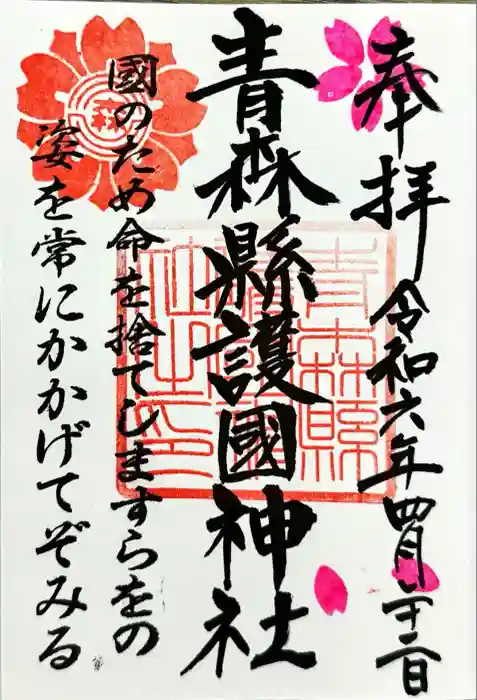 奉拝 令和六年四月二十二日
青森縣護國神社
國のため命を捨てしますらをの
姿を常にかかげてぞみる
青森縣
護國神
社之印